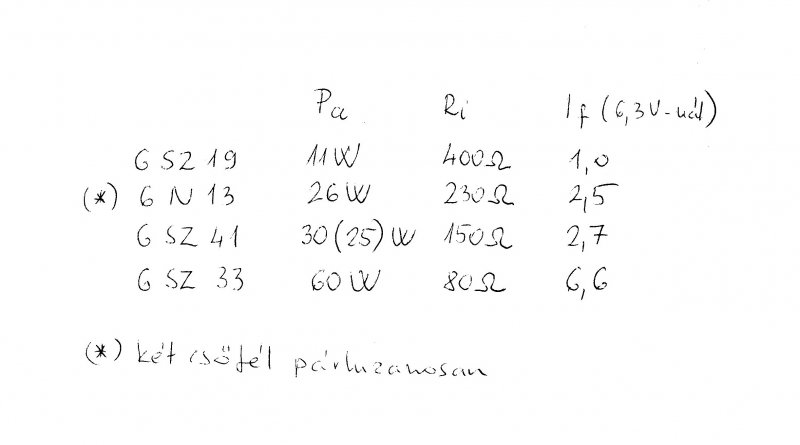 Pa Ri If (6,3V-nál)
6 SZ 19 11W 400Ω 1,0
(*) 6 N 13 26W 230Ω 2,5
6 SZ 41 30(25)W 150Ω 2,7
6 SZ 33 60W 80Ω 6,6
(*) két csőfél párhuzamosan